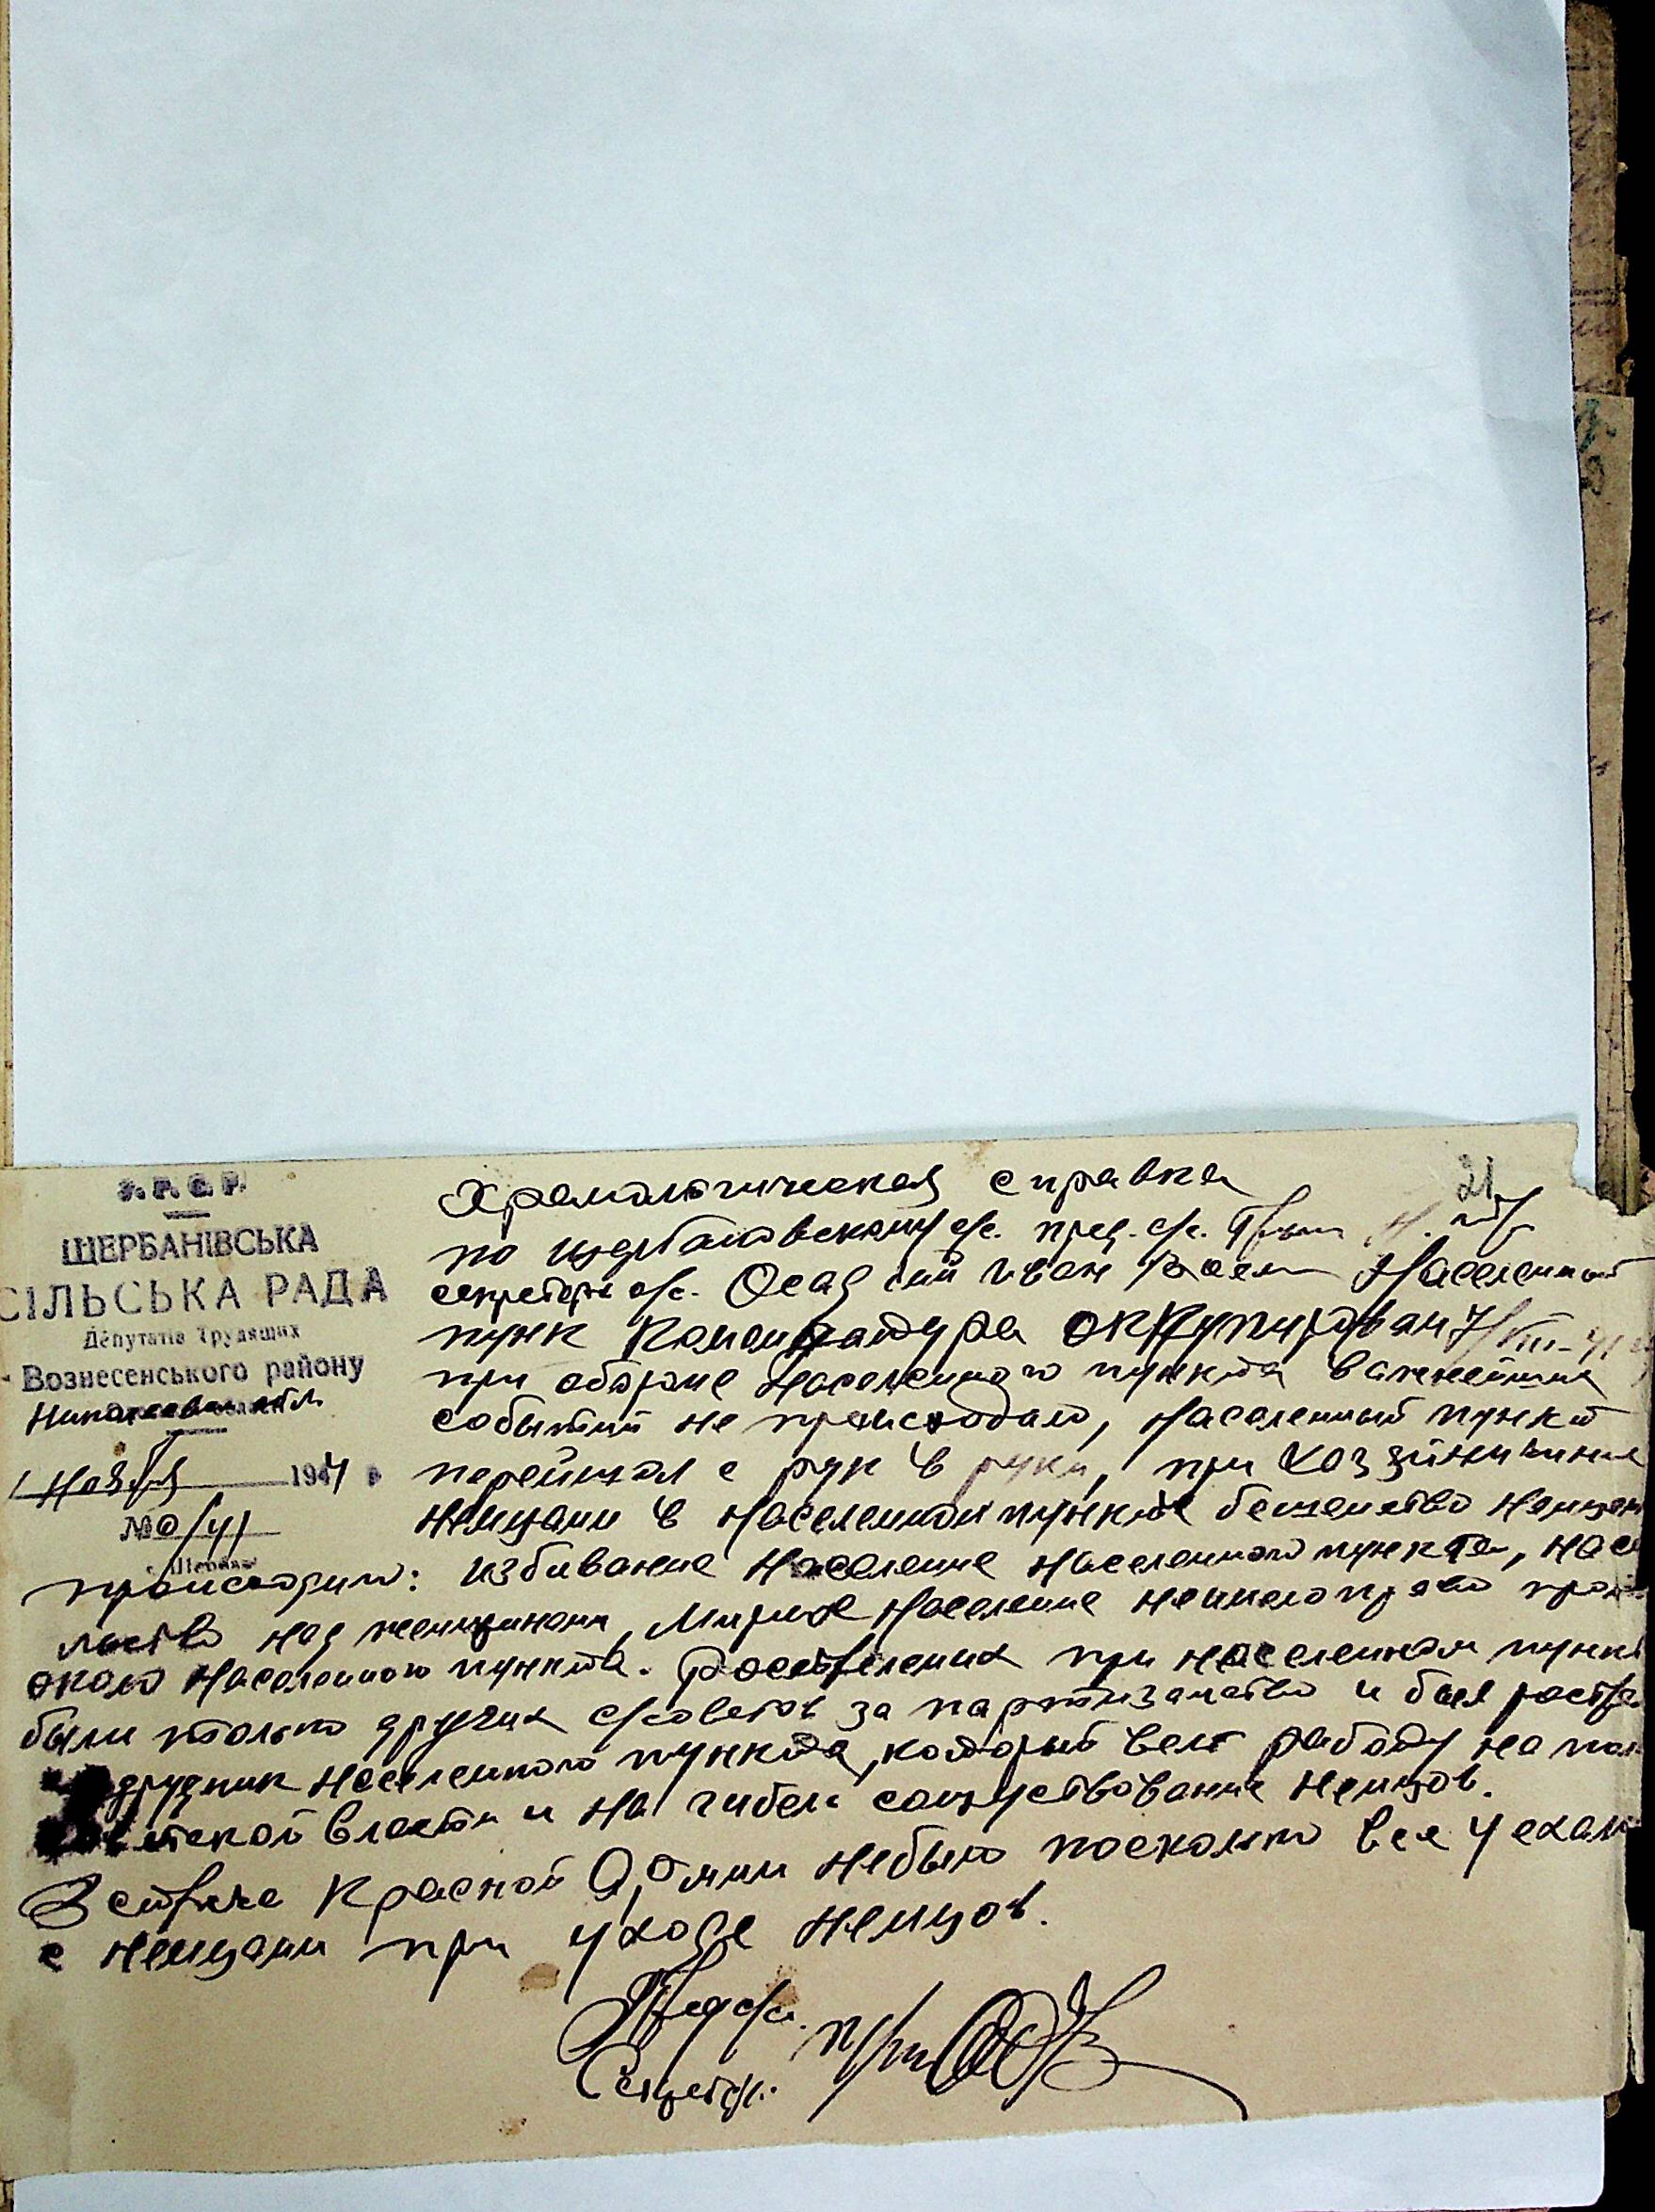 У.Р.С.Р.
ЩЕРБАНІВСЬКА
СІЛЬСЬКА РАДА
Депутатів Трудящих
Вознесенського району
Николаевск обл
1 Ноября 1944 р
№ 0/41
с. Щербани
21
Хромологическая справка
по щербановскому с/с. пред. с/с.
секретарь с/с. Осад Иван Населенный
пунк оккупирован 7/VIII-41
при обороне Населенного пункта важнейших
событий не происходило, населенный пункт
перейшол с рук в руки, при хоззяйнивание
немцами в населенном пункте бешенство немцами
происходило: избивание население населенного пункта, наси
льство над женщинами, Мирное население неимело право
около населенного пункта. Росстрелених при населенном пункт
были только других с/советов за партизанство и был росстре
населенного пункта, который вел работу на
власти и на гибель сощуствование немцов.
Встречи Красной Армии небыло посколько все уехали
с немцами при уходе немцов.
Пред с/с.
Секретарь.